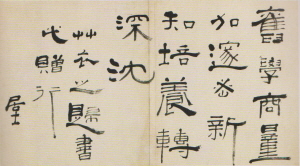 舊學商量
加邃密新
知培養轉
深沈
艸衣之歸書
代贈行